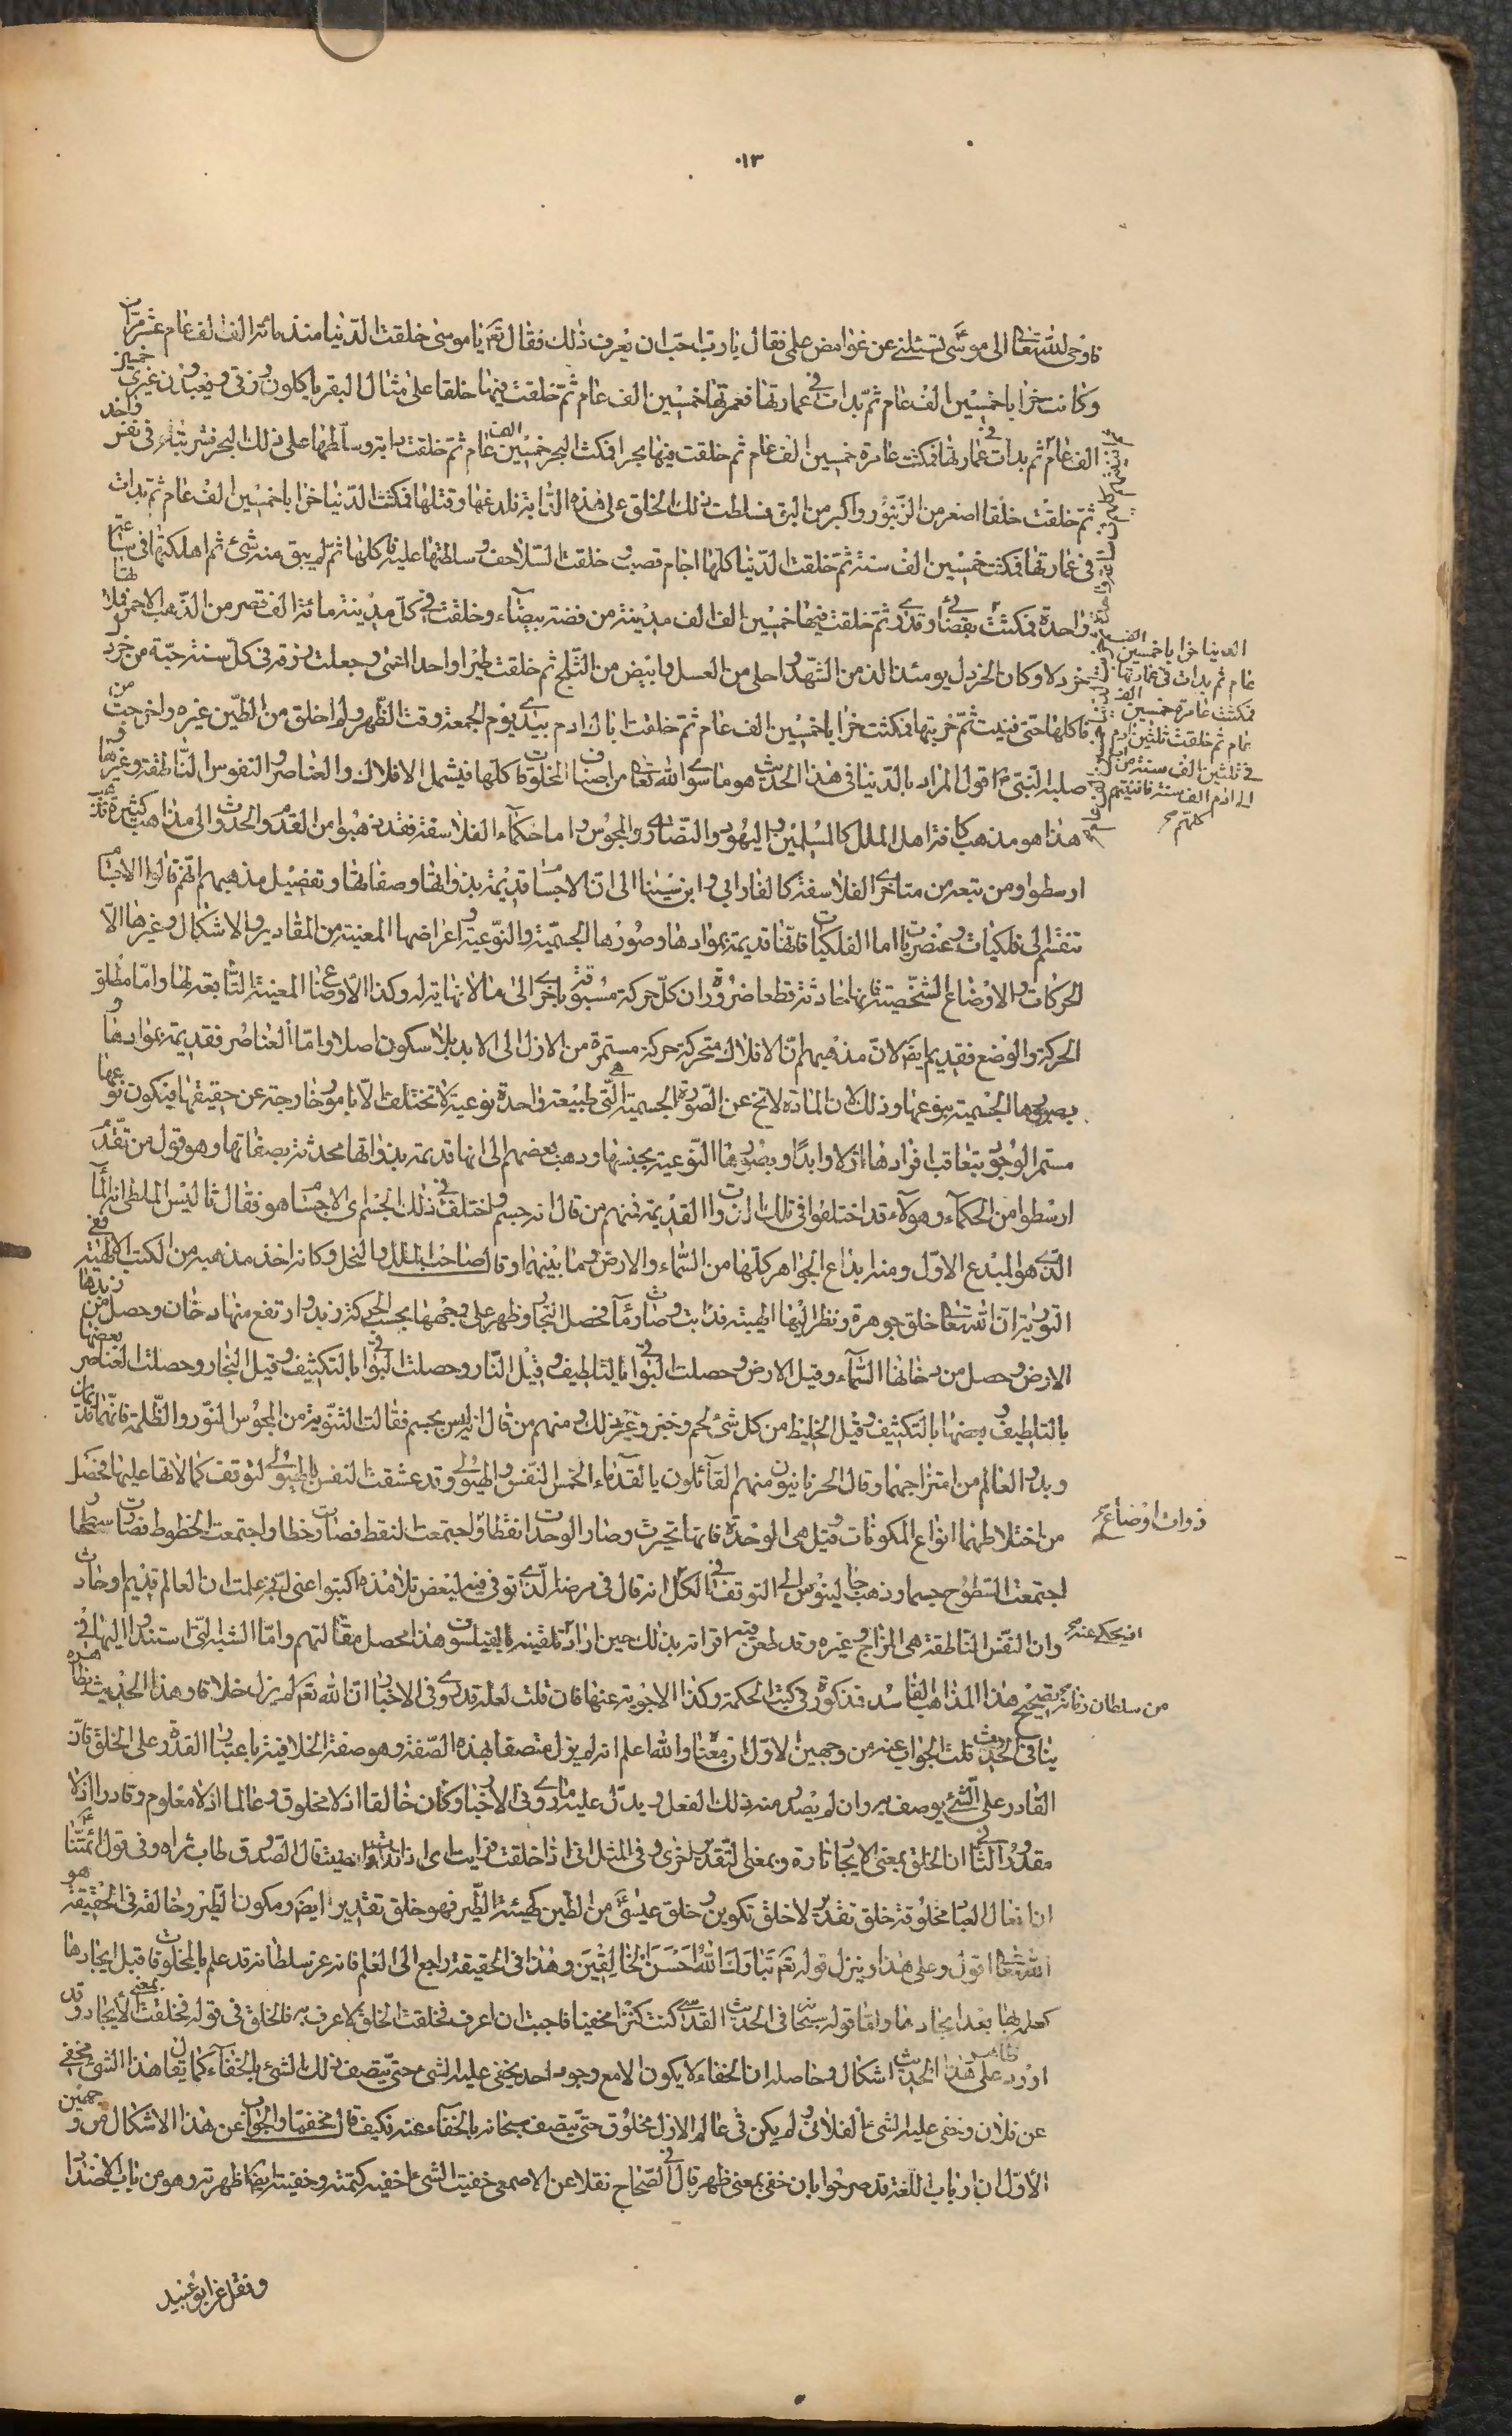 ٠١٣
فاوحى الله تعالى الى موسى تسئلنى عن غوامض علمى فقال يا رب احب ان يعرف ذلك فقال تع يا موسى خلقت الدنيا منذ مائة الف الف عام عشر مرات
وكانت خرابا خمسين الف عام ثم بدات فى عمارتها فعمرتها خمسين الف عام ثم خلقت فيها خلقا على مثال البقر ياكلون رزقى ويعبدون غيرى خمسين
الف عام ثم بدات فى عمارتها فمكثت عامرة خمسين الف عام ثم خلقت فيها بحرا فمكث البحر خمسين الف عام ثم خلقت دابة وسلطتها على ذلك البحر فشربته فى نفس واحد
ثم خلقت خلقا اصغر من الزنبور واكبر من البق فسلطت ذلك الخلق على هذه الدابة فلدغها وقتلها فمكثت الدنيا خرابا خمسين الف عام ثم بدات
فى عمارتها فمكثت خمسين الف سنة ثم خلقت الدنيا كلها اجام قصب وخلقت السلاحف وسلطتها عليها فاكلها ثم لم يبق منه شئ ثم اهلكتها فى ساعة
واحدة فمكثت بقضائى وقدرى ثم خلقت فيها خمسين الف الف مدينة من فضة بيضاء وخلقت فى كل مدينة مائة الف قصر من الذهب الاحمر فملاتها
خردلا وكان الخردل يومئذ الذ من الشهد واحلى من العسل وابيض من الثلج ثم خلقت طيرا واحدا اعمى وجعلت رزقه فى كل سنة حبة من خردل
فاكلها حتى فنيت ثم خربتها فمكثت خرابا خمسين الف عام ثم خلقت اباك ادم بيدى يوم الجمعة وقت الظهر ولم اخلق من الطين غيره واخرجت من
صلبه النبى ص اقول المراد بالدنيا فى هذا الحديث هو ما سوى الله تعالى من اصناف المخلوقات كلها فيشمل الافلاك والعناصر والنفوس الناطقة وغيرها و
هذا هو مذهب كافة اهل الملل كالمسلمين واليهود والنصارى والمجوس واما حكماء الفلاسفة فقد ذهبوا من القدم والحدوث الى مذاهب كثيرة فذهب
ارسطو ومن تبعه من متاخرى الفلاسفة كالفارابى وابن سينا الى ان الاجسام قديمة بذواتها وصفاتها وتفصيل مذهبهم انهم قالوا الاجسام
تنقسم الى فلكيات وعنصريات اما الفلكيات فانها قديمة بموادها وصورها الجسمية والنوعية واعراضها المعنية من المقادير والاشكال وغيرها الا
الحركات والاوضاع الشخصية فانها حادثة قطعا ضرورة ان كل حركة مسبوقة باخرى الى ما لا نهاية له وكذا الاوضاع المعينة التابعة لها واما مطلق
الحركة والوضع فقديم ايض لان مذهبهم ان الافلاك متحركة حركة مستمرة من الازل الى الابد بلا سكون اصلا واما العناصر فقديمة بموادها و
بصورها الجسمية بنوعها وذلك لان المادة لا تخ عن الصورة الجسمية التى هى طبيعة واحدة نوعية لا تختلف الا بامور خارجة عن حقيقتها فيكون نوعها
مستمر الوجود بتعاقب افرادها ازلا وابدا وبصورها النوعية بجنسها وذهب بعضهم الى انها قديمة بذواتها محدثة بصفاتها وهو قول من تقدم
ارسطو من الحكماء وهولاء قد اختلفوا فى تلك الذوات القديمة فمنهم من قال انه جسم واختلف فى ذلك الجسم اى الاجسام هو فقال ثاليس الملطى انه الماء
الذى هو المبدع الاول ومنه ابداع الجواهر كلها من السماء والارض وما بينهما وقال صاحب الملل والنحل وكانه اخذ مذهبه من الكتب الالهية ففى
التورية ان الله تعالى خلق جوهرة ونظر اليها نظر الهيبة فذابت وصارت ماء فحصل البخار وظهر على وجهها بحسب الحركة زبد وارتفع منها دخان وحصل من زبدها
الارض وحصل من دخانها السماء وقيل الارض وحصلت البواقى بالتلطيف وقيل النار وحصلت البواقى بالتكثيف وقيل البخار وحصلت العناصر بعضها
بالتلطيف وبعضها بالتكثيف وقيل الخليط من كل شئ لحم وخبز وغير ذلك ومنهم من قال انه ليس بجسم فقالت الثنوية من المجوس النور والظلمة فانهما قديمان
وبدو العالم من امتزاجهما وقال الحرنانيون منهم القائلون بالقدماء الخمس النفس والهيولى وقد عشقت النفس بالهيولى لتوقف كمالاتها عليها فحصل
من اختلاطهما انواع المكونات وقيل هى الوحدة فانها تحيزت وصار الوحدات نقطا واجتمعت النقط فصارت خطا واجتمعت الخطوط فصارت سطحا و
اجتمعت السطوح جسما وذهب جالينوس الى التوقف فى الكل انه قال فى مرضه الذى توفى فيه لبعض تلامذه اكتبوا عنى لتجز علمت ان العالم قديم او حادث
وان النفس الناطقة هى المزاج وغيره وقد طعن فيه اقرانه بذلك حين اراد تلقيبه بالفيلسوف هذا محصل مقالتهم واما الشبه التى استندوا اليها فى
تصحيح هذه المذاهب الفاسدة فمذكورة فى كتب الحكمة وكذا الاجوبة عنها فان قلت لعله قد روى فى الاخبار ان الله تع لم يزل خلاقا وهذا الحديث بظاهره
ينافى الحدوث قلت الجواب عنه من وجهين الاول ان معناه والله اعلم انه لم يزل متصفا بهذه الصفة وهو صفة الخلاقية باعتبار القدرة على الخلق فان
القادر على الشئ يوصف به وان لم يصدر منه ذلك الفعل ويدل عليه ما روى فى الاخبار وكان خالقا اذ لا مخلوق وعالما اذ لا معلوم وقادرا اذ لا
مقدور الثانى ان الخلق بمعنى الايجاد تارة وبمعنى التقدير اخرى وفى المثل انى اذا خلقت فريت اى اذا قدرت قال الصدوق طاب ثراه وفى قول ائمتنا ع
ان افعال العباد مخلوقة خلق تقدير لا خلق تكوين وخلق عيسى من الطين كهيئة الطير فهو خلق تقدير ايض ومكون الطير وخالقه فى الحقيقة هو
الله تعالى اقول وعلى هذا ينزل قوله تع تبارك الله احسن الخالقين وهذا فى الحقيقة راجع الى العلم فانه عز سلطانه قد علم بالمخلوقات قبل ايجادها
كعلمه بها بعد ايجادها واما قوله سبحانه فى الحديث القدسى كنت كنزا مخفيا فاحببت ان اعرف فخلقت الخلق لاعرف به فالخلق فى قوله فخلقت بمعنى الايجاد وقد
اورد على ظاهر هذا الحديث اشكال وحاصله ان الخفاء لا يكون الا مع وجود احد يخفى عليه الشئ حتى يتصف ذلك الشئ بالخفاء كما يقال هذا الشئ مخفى
عن فلان وخفى عليه الشئ الفلانى ولم يكن فى عالم الازل مخلوق حتى يتصف سبحانه بالخفاء عنه فكيف قال مخفيا والجواب عن هذا الاشكال من وجهين
الاول ان ارباب اللغة قد صرحوا بان خفى بمعنى ظهر قال فى الصحاح نقلا عن الاصمعى خفيت الشئ اخفيه كتمته وخفيته ايضا اظهرته وهو من باب الاضداد
ونقل عن ابو عبيد
الدنيا خرابا خمسين الف
عام ثم بدات فى عمارتها
فمكثت عامرة خمسين الف
عام ثم خلقت ثلثين ادم
فى ثلثين الف سنة من ادم
الى ادم الف سنة فافنيتهم
كلهم صح
ذوات اوضاع